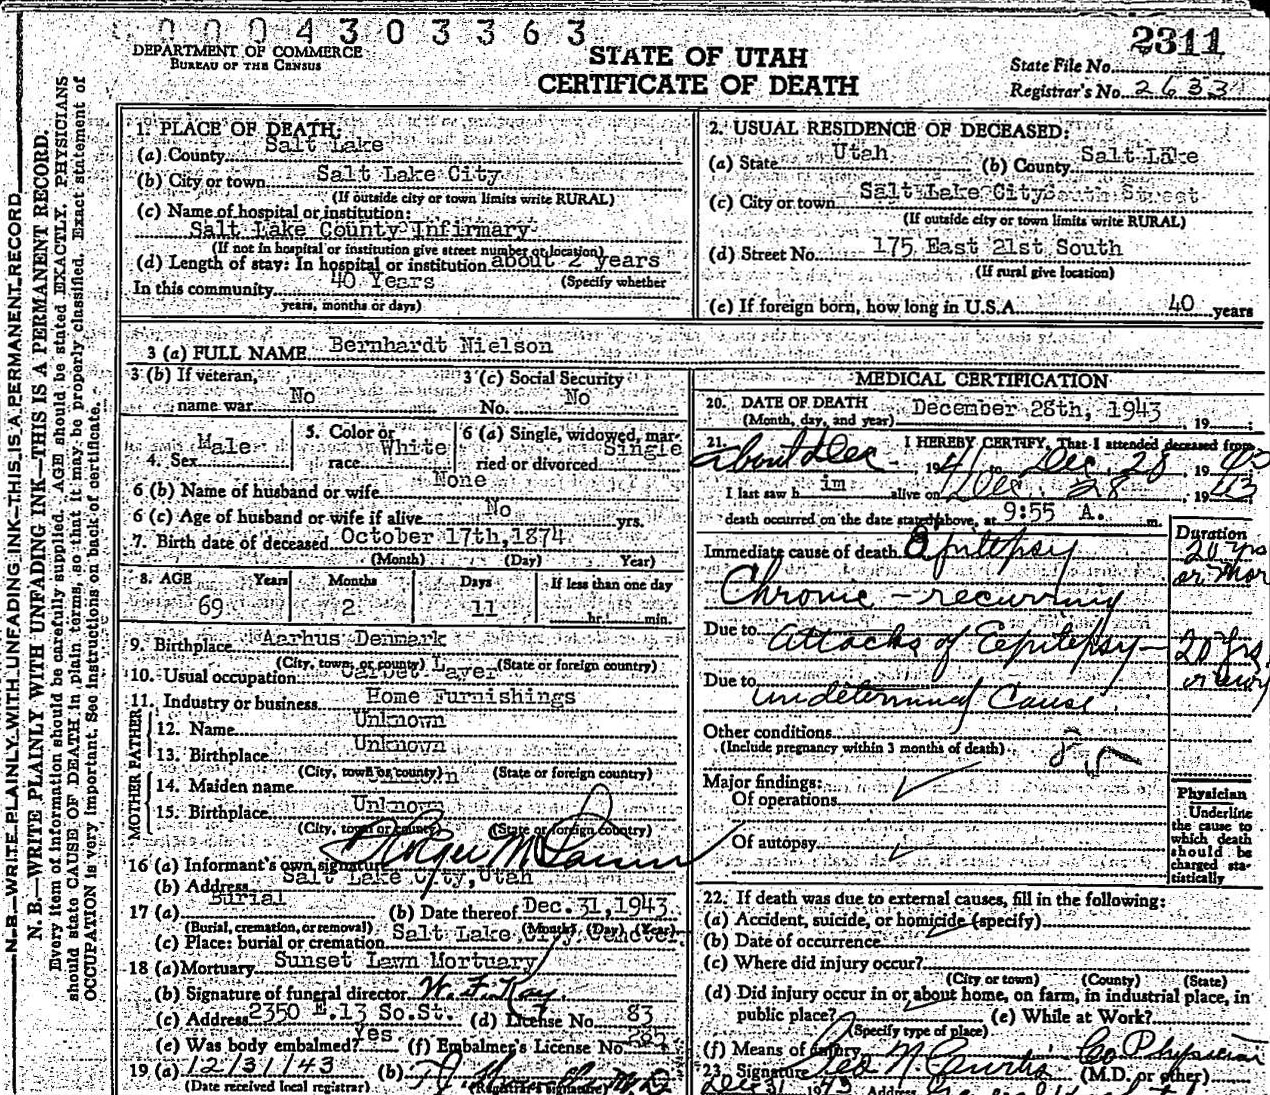 0 0 0 4 3 0 3 3 6 3
2311
DEPARTMENT OF COMMERCE
BUREAU OF THE CENSUS
STATE OF UTAH
CERTIFICATE OF DEATH
State File No.
Registrar's No. 2633
N. B.—WRITE PLAINLY WITH UNFADING INK—THIS IS A PERMANENT RECORD
N. B.—WRITE PLAINLY WITH UNFADING INK—THIS IS A PERMANENT RECORD.
Every item of information should be carefully supplied. AGE should be stated EXACTLY. PHYSICIANS
should state CAUSE OF DEATH in plain terms, so that it may be properly classified. Exact statement of
OCCUPATION is very important. See instructions on back of certificate.
1. PLACE OF DEATH:
(a) County Salt Lake
(b) City or town Salt Lake City
(If outside city or town limits write RURAL)
(c) Name of hospital or institution:
Salt Lake County Infirmary
(If not in hospital or institution give street number or location)
(d) Length of stay: In hospital or institution about 2 years
In this community 40 Years (Specify whether
years, months or days)
2. USUAL RESIDENCE OF DECEASED:
(a) State Utah (b) County Salt Lake
(c) City or town Salt Lake City South Street
(If outside city or town limits write RURAL)
(d) Street No. 175 East 21st South
(If rural give location)
(e) If foreign born, how long in U.S.A. 40 years
3 (a) FULL NAME Bernhardt Nielson
3 (b) If veteran, name war No
3 (c) Social Security No. No
4. Sex Male
5. Color or race White
6 (a) Single, widowed, married or divorced Single
6 (b) Name of husband or wife None
6 (c) Age of husband or wife if alive No yrs.
7. Birth date of deceased October 17th, 1874
(Month) (Day) Year)
8. AGE Years Months Days If less than one day
69 2 11 hr. min.
9. Birthplace Aarhus Denmark
(City, town, or county) (State or foreign country)
10. Usual occupation Carpet Layer
11. Industry or business Home Furnishings
FATHER
12. Name Unknown
13. Birthplace Unknown
(City, town or county) (State or foreign country)
MOTHER
14. Maiden name Unknown
15. Birthplace Unknown
(City, town or county) (State or foreign country)
16 (a) Informant's own signature
(b) Address Salt Lake City, Utah
17 (a) Burial (b) Date thereof Dec. 31, 1943
(Burial, cremation, or removal) (Month) (Day) (Year)
(c) Place: burial or cremation Salt Lake City Cemeter
18 (a) Mortuary Sunset Lawn Mortuary
(b) Signature of funeral director W. F. Kay.
(c) Address 2350 E. 13 So. St. (d) License No. 83
(e) Was body embalmed? Yes (f) Embalmer's License No. 235
19 (a) 12/31/43 (b)
(Date received local registrar) (Registrar's signature)
MEDICAL CERTIFICATION
20. DATE OF DEATH December 28th, 1943, 19
(Month, day, and year)
21. I HEREBY CERTIFY, That I attended deceased from
about Dec 1941 to Dec. 28, 1943
I last saw h im alive on Dec. 28, 1943
death occurred on the date stated above, at 9:55 A. m.
Duration
Immediate cause of death Epilepsy 20 yrs
or more
Chronic - recurring
Due to attacks of Epilepsy - 20 yrs
Due to undetermined Cause.
Other conditions
(Include pregnancy within 3 months of death)
85
Major findings:
Of operations
Of autopsy
Physician
Underline
the cause to
which death
should be
charged sta-
tistically
22. If death was due to external causes, fill in the following:
(a) Accident, suicide, or homicide (specify)
(b) Date of occurrence
(c) Where did injury occur?
(City or town) (County) (State)
(d) Did injury occur in or about home, on farm, in industrial place, in
public place? (e) While at Work?
(Specify type of place)
(f) Means of injury
23. Signature Geo N. Curtis Co Physician
(M.D. or other)
Dec 31 1943 Address